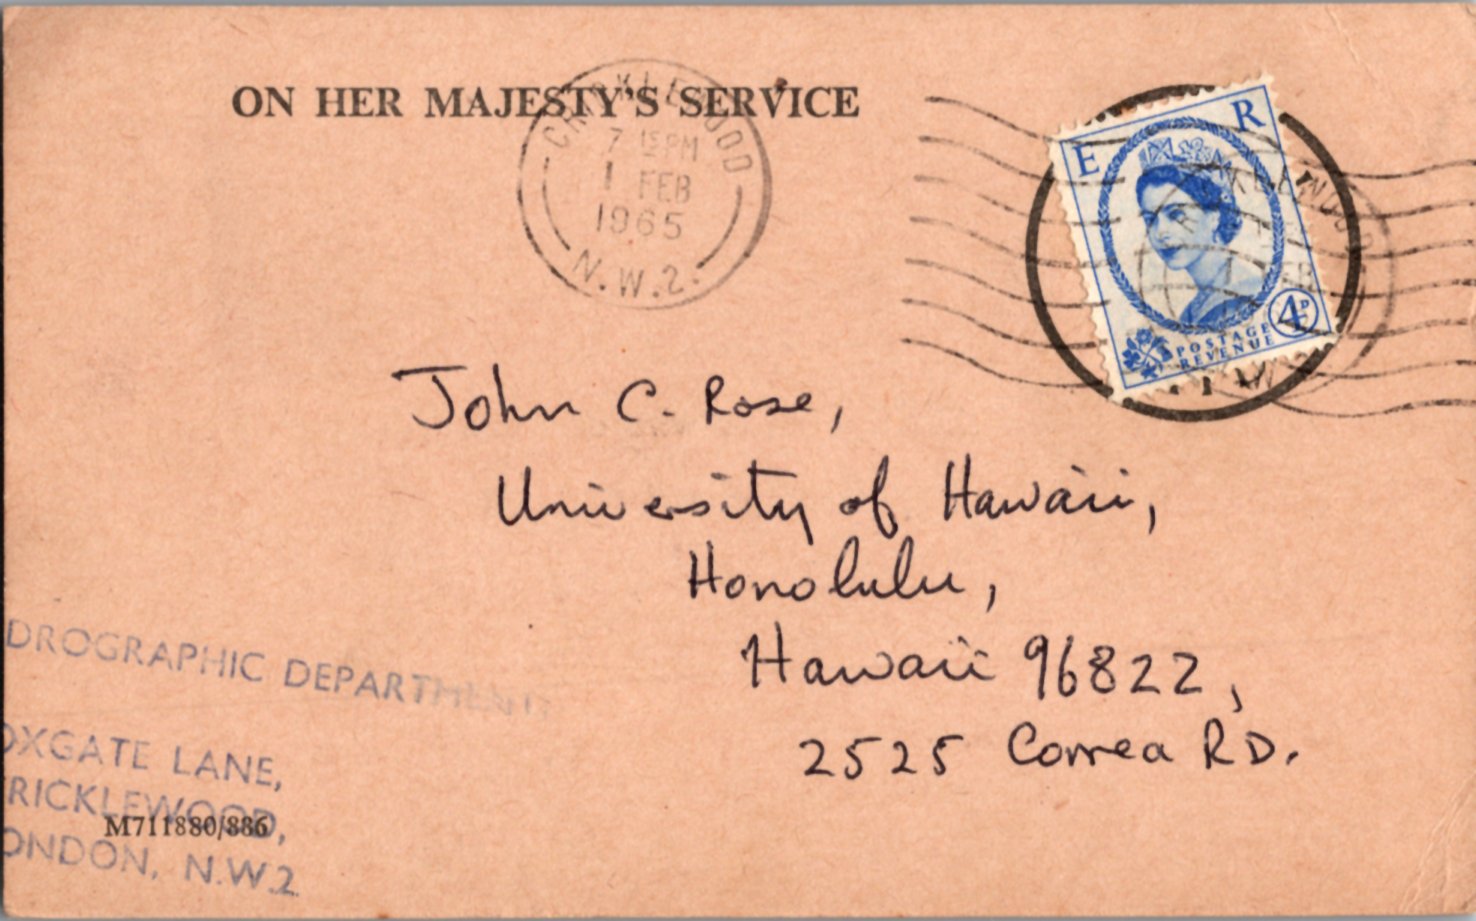 ON HER MAJESTY'S SERVICE
CRICKLEWOOD
7 15 PM
1 FEB
1965
N.W.2.
E R
4D
POSTAGE
REVENUE
John C. Rose,
University of Hawaii,
Honolulu,
Hawaii 96822,
2525 Correa RD.
DROGRAPHIC DEPARTMENT
OXGATE LANE,
RICKLEWOOD,
M711880/886
ONDON, N.W.2.